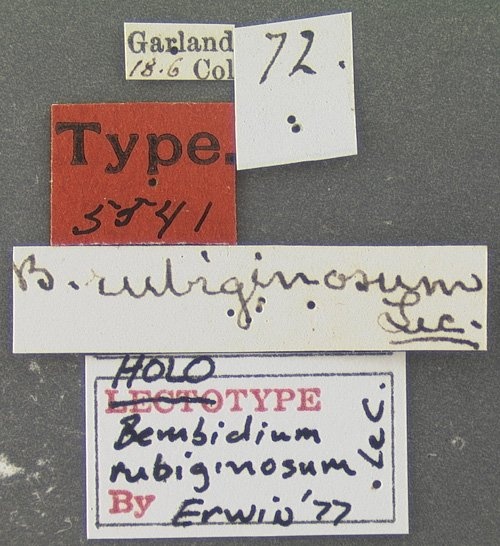 Garland
18.6 Col
72.
Type.
5541
B. rubiginosum
Lec.
HOLO
LECTOTYPE
Bembidium
rubiginosum Lec.
By Erwin '77